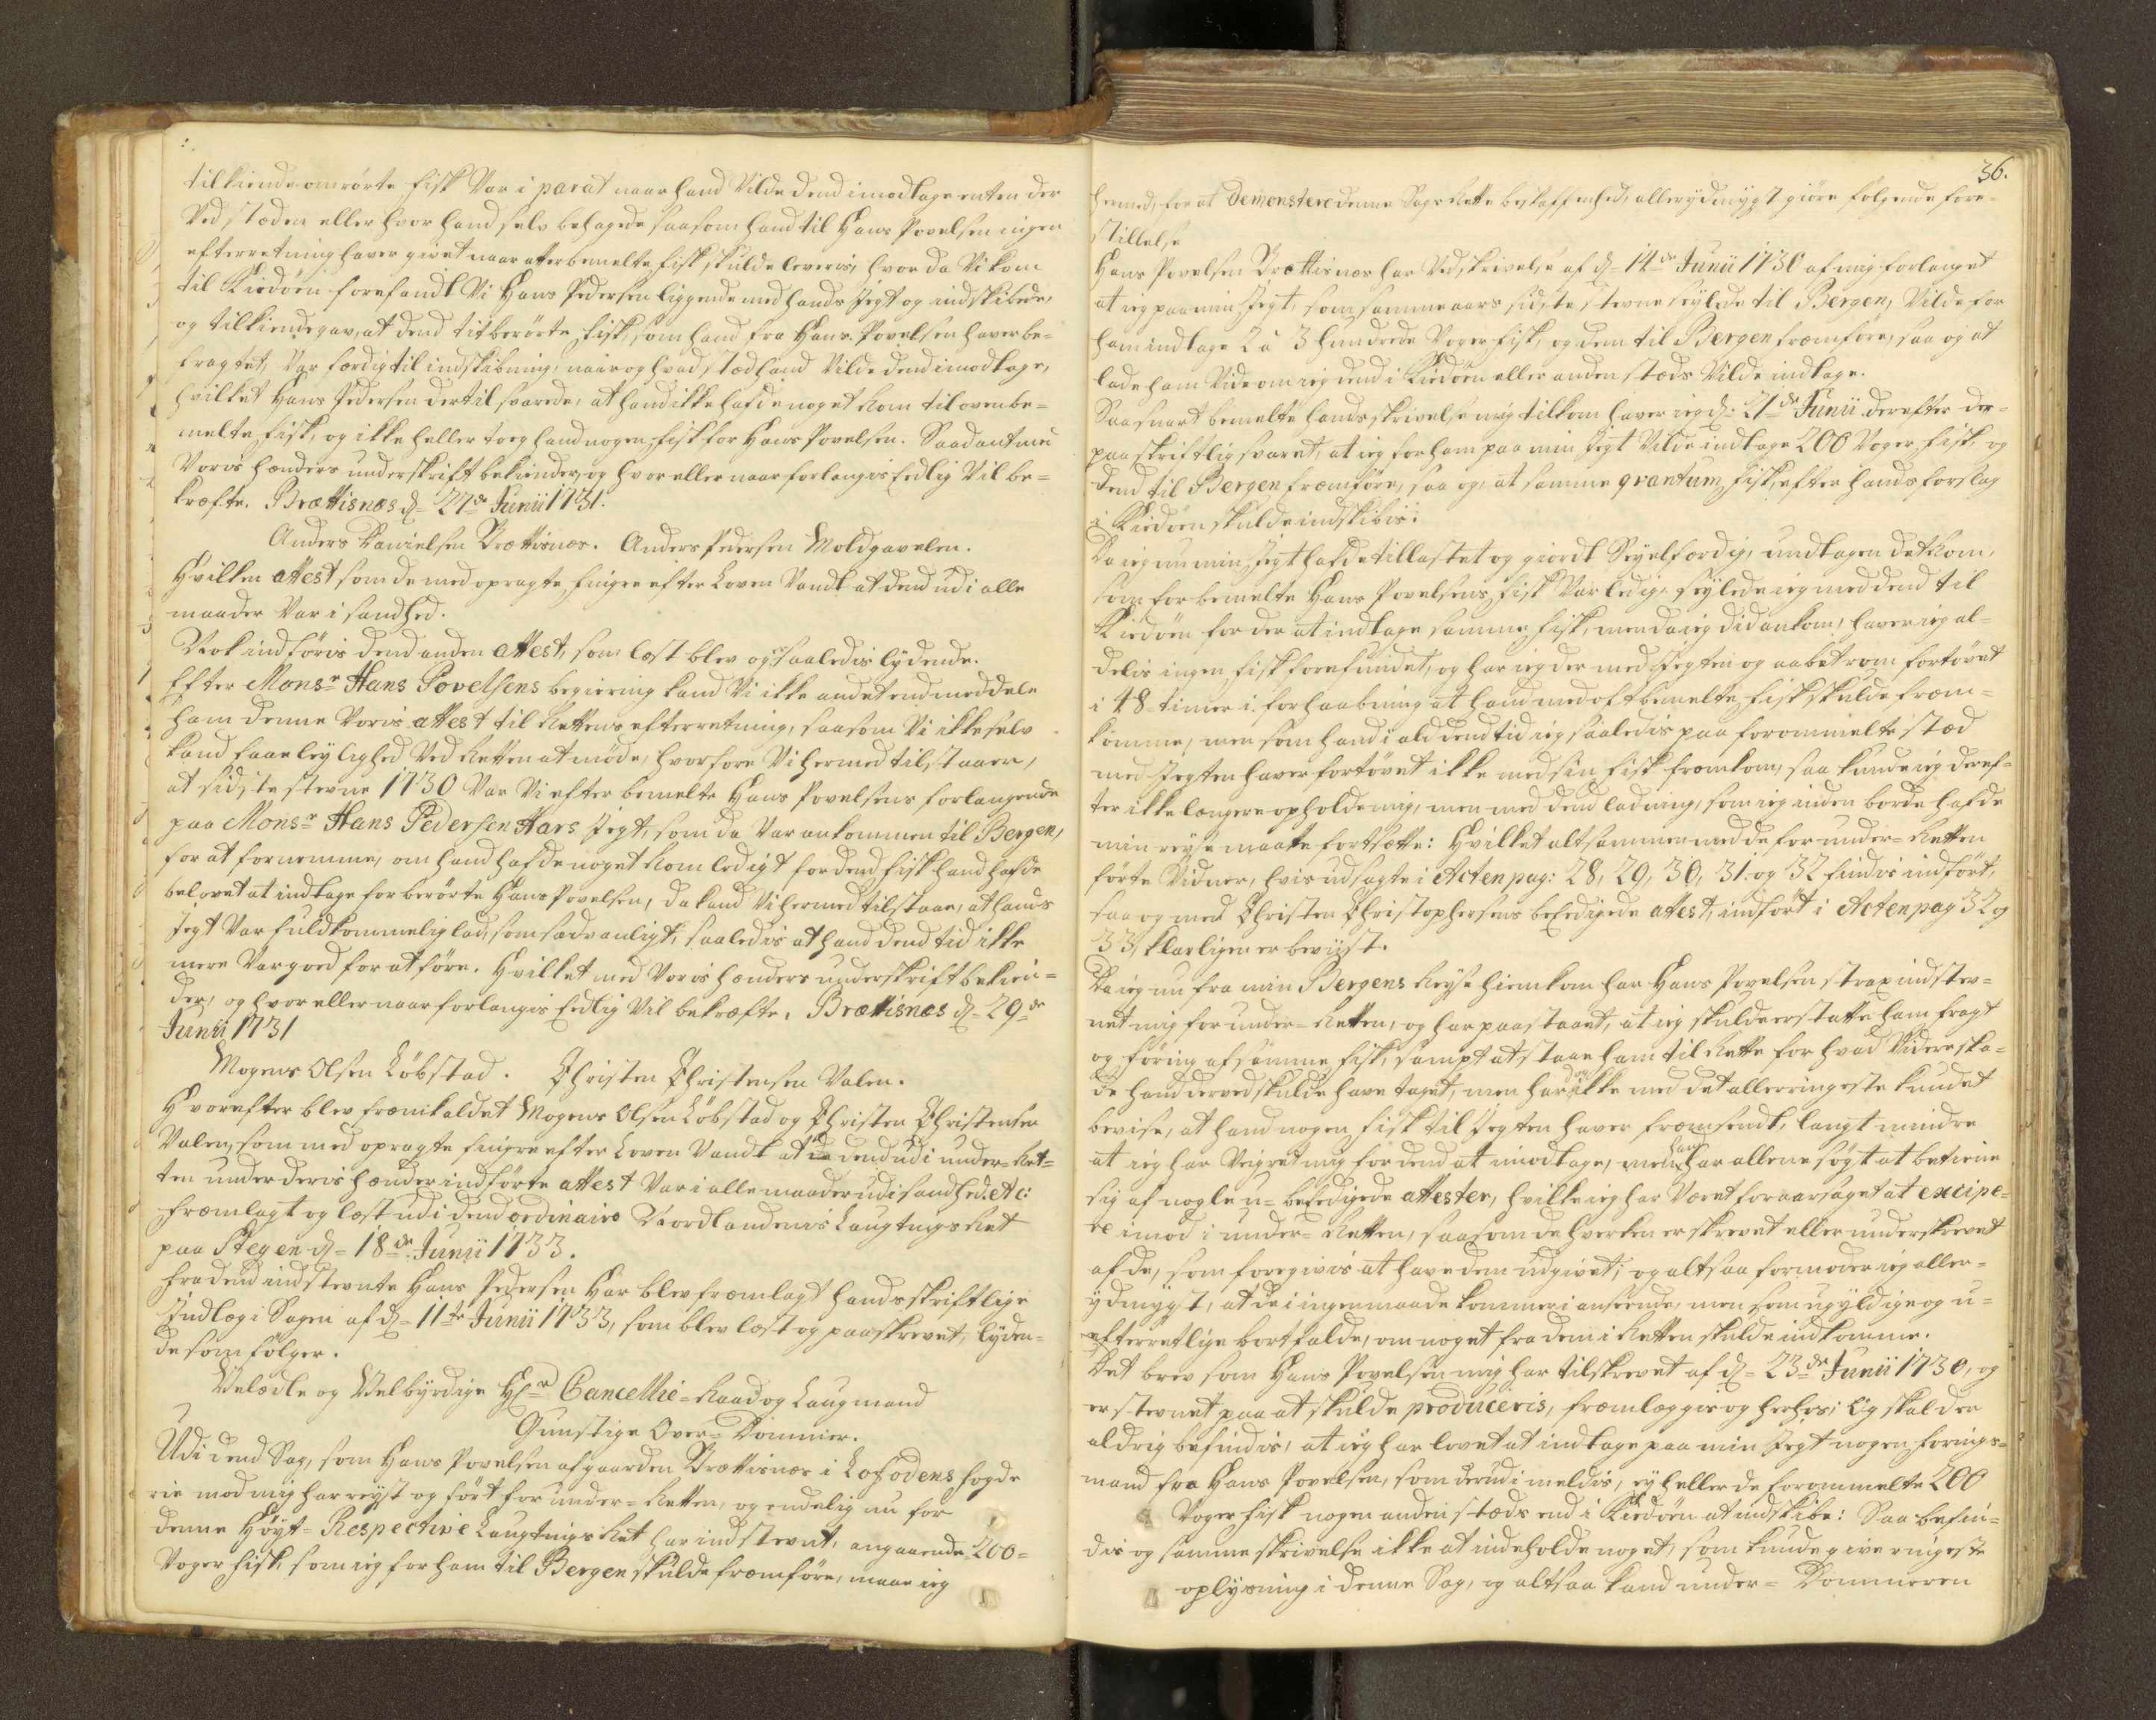 tilkiende omrørte fisk Var i parat naar hand Vilde dend imodtage enten der
Ved stæden eller hvor hand selv behagede saasom hand til Hans Povelsen ingen
efterretning haver givet naar atter bemelte fisk skulde leveris, hvor da Vi kom
til Kiedøen forefandt Vi Hans Pedersen liggende med hands Jegt og indskibede,
og tilkiendegav, at dend titberørte fisk, som hand fra Hans Povelsen haver be-
fragtet, Var færdig til indskibning, naar og hvad stæd hand Vilde dend imodtage,
hvilket Hans Pedersen dertil svarede, at hand ikke hafde noget Rom til ovenbe-
melte fisk, og ikke heller toeg hand nogen fisk for Hans Povelsen. Saadant med
Voris hænders underskrift bekiender, og hvor eller naar forlangis Eedlig Vil be-
kræfte. Brættisnæs d. 27de Junii 1731.
Anders Danielsen Brættisnæs. Anders Pedersen Moldgavelen.
Hvilken attest som de med opragte finger efter Loven Vandt at dend udi alle
maader Var i sandhed.
Nok indføris dend anden attest, som læst blev og saaledis lydende.
Efter Monsr Hans Povelsens begiering kand Vi ikke andet end meddele
ham denne Voris attest til Rettens efterretning, saasom Vi ikke selv
kand faae leylighed Ved Retten at møde, hvorfore Vi hermed tilstaaer,
at sidste stevne 1730 Var Vi efter bemelte Hans Povelsens forlangende
paa Monsr Hans Pedersen Hars Jegt, som da Var ankommen til Bergen,
for at fornemme, om hand hafde noget Rom ledigt for dend fisk hand hafde
belovet at indtage for berørte Hans Povelsen, da kand Vi hermed tilstaae, at hands
Jegt Var fuldkommelig lad, som sædvanligt, saaledis at hand dend tid ikke
mere Var goed for at føre. Hvilket med Voris hænders underskrift bekien-
der, og hvor eller naar forlangis Eedlig Vil bekræfte. Brættisnæs d. 29de
Junii 1731
Mogens Olsen Løbstad. Christen Christensen Valen.
Hvorefter blev fremkaldet Mogens Olsen Løbstad og Christen Christensen
Valen, som med opragte fingre efter Loven Vandt at dend udi under-Ret-
ten under deris hænder indførte attest Var i alle maader udi sandhed. etc:
Fremlagt og læst udi dend ordinaire Nordlandenis Laugtings Ret
paa Stegen d. 18de Junii 1733.
Fra dend indstevnte Hans Pedersen Har blev fremlagt hands skriftlige
Indlæg i Sagen af d. 11te Junii 1733, som blev læst og paaskrevet, lyden-
de som følger.
Velædle og Velbyrdige Hr Cancellie-Raad og Laugmand
Gunstige Over-Dommer.
Udi dend Sag, som Hans Povelsen af gaarden Brættisnæs i Lofodens fogde
rie mod mig har reyst og ført for under-Retten, og endelig nu for
denne Høyt-Respective Laugtings Ret har indstevnt, angaaende 200-
Voger fisk, som ieg for ham til Bergen skulde fremføre, maae ieg
36.
hermed, for at Demonstere denne Sags Rette beskaffenhed, allerydmygst giøre følgende fore-
stillelse
Hans Povelsen Brættisnæs har Ved skrivelse af d. 14de Junii 1730 af mig forlanget
at ieg paa min Jegt, som samme aars sidste stevne seylede til Bergen, Vilde for
ham indtage 2 a 3 hundrede Voger fisk, og dem til Bergen fremføre, saa og at
lade ham Vide om ieg dend i Kiedøen eller anden stæds Vilde indtage.
Saasnart bemelte hands skrivelse mig tilkom haver ieg d. 21de Junii derefter der-
paa skriftlig svaret, at ieg for ham paa min Jegt Vilde indtage 200 Voger fisk, og
dend til Bergen fremføre, saa og, at samme qvantum fisk, efter hands forslag
i Kiedøen skulde indskibis:
Da ieg nu min Jegt hafde tillastet og giordt Seyelfærdig, undtagen det Rom,
som for bemelte Hans Povelsens fisk Var ledig, seylede ieg med dend til
Kiedøen for der at indtage samme fisk, men da ieg did ankom, haver ieg al-
delis ingen fisk forefundet, og har ieg der med Jegten og aabet rom fortøvet
i 48 timer i forhaabning at hand med oftbemelte fisk skulde frem-
komme, men som hand i ald dend tid ieg saaledis paa forommelte stæd
med Jegten haver fortøvet ikke med sin fisk fremkom, saa kunde ieg deref-
ter ikke længere opholde mig, men med dend ladning, som ieg inden borde hafde
min reyse maatte fortsætte: Hvilket altsammen med de for under-Retten
førte Vidner, hvis udsagte i Acten pag: 28, 29, 30, 31. og 32 findis indført,
saa og med Christen Christophersens beeedigede attest, indført i Acten pag 32 og
33, klarligen er beviist.
Da ieg nu fra min Bergens Reyse hiemkom har Hans Povelsen strax indstev-
net mig for under-Retten, og har paastaaet, at ieg skulde erstatte ham fragt
og føring af samme fisk, sampt at staae ham til Rette for hvad Videre ska-
de hand derved skulde have taget, men har dog ikke med det allerringeste kundet
bevise, at hand nogen fisk til Jegten haver fremsendt, langt mindre
at ieg har Veigret mig for dend at imodtage, men hand har allene søgt at betiene
sig af nogle u-beeedigede attester, hvilke ieg har Været foraarsaget at excipe-
re imod i under-Retten, saasom de hverken er skrevet eller underskrevet
af de, som foregivis at have dem udgivet; og altsaa formoder ieg aller-
ydmygst, at de i ingen maade kommer i anseende, men som ugyldige og u-
efterretlige bortfalde, om noget fra dem i Retten skulde indkomme.
Det brev som Hans Povelsen mig har tilskrevet af d. 23de Junii 1730, og
er stevnet paa at skulde produceris, fremlæggis og herhos; Og skal der
aldrig befindis, at ieg har lovet at indtage paa min Jegt nogen førings-
mand fra Hans Povelsen, som derudi meldis, ey heller de forommelte 200
Voger fisk nogen anden stæds end i Kiedøen at indskibe: Saa befin-
dis og samme skrivelse ikke at indeholde noget, som kunde give ringeste
oplysning i denne Sag, og altsaa kand under-Dommeren